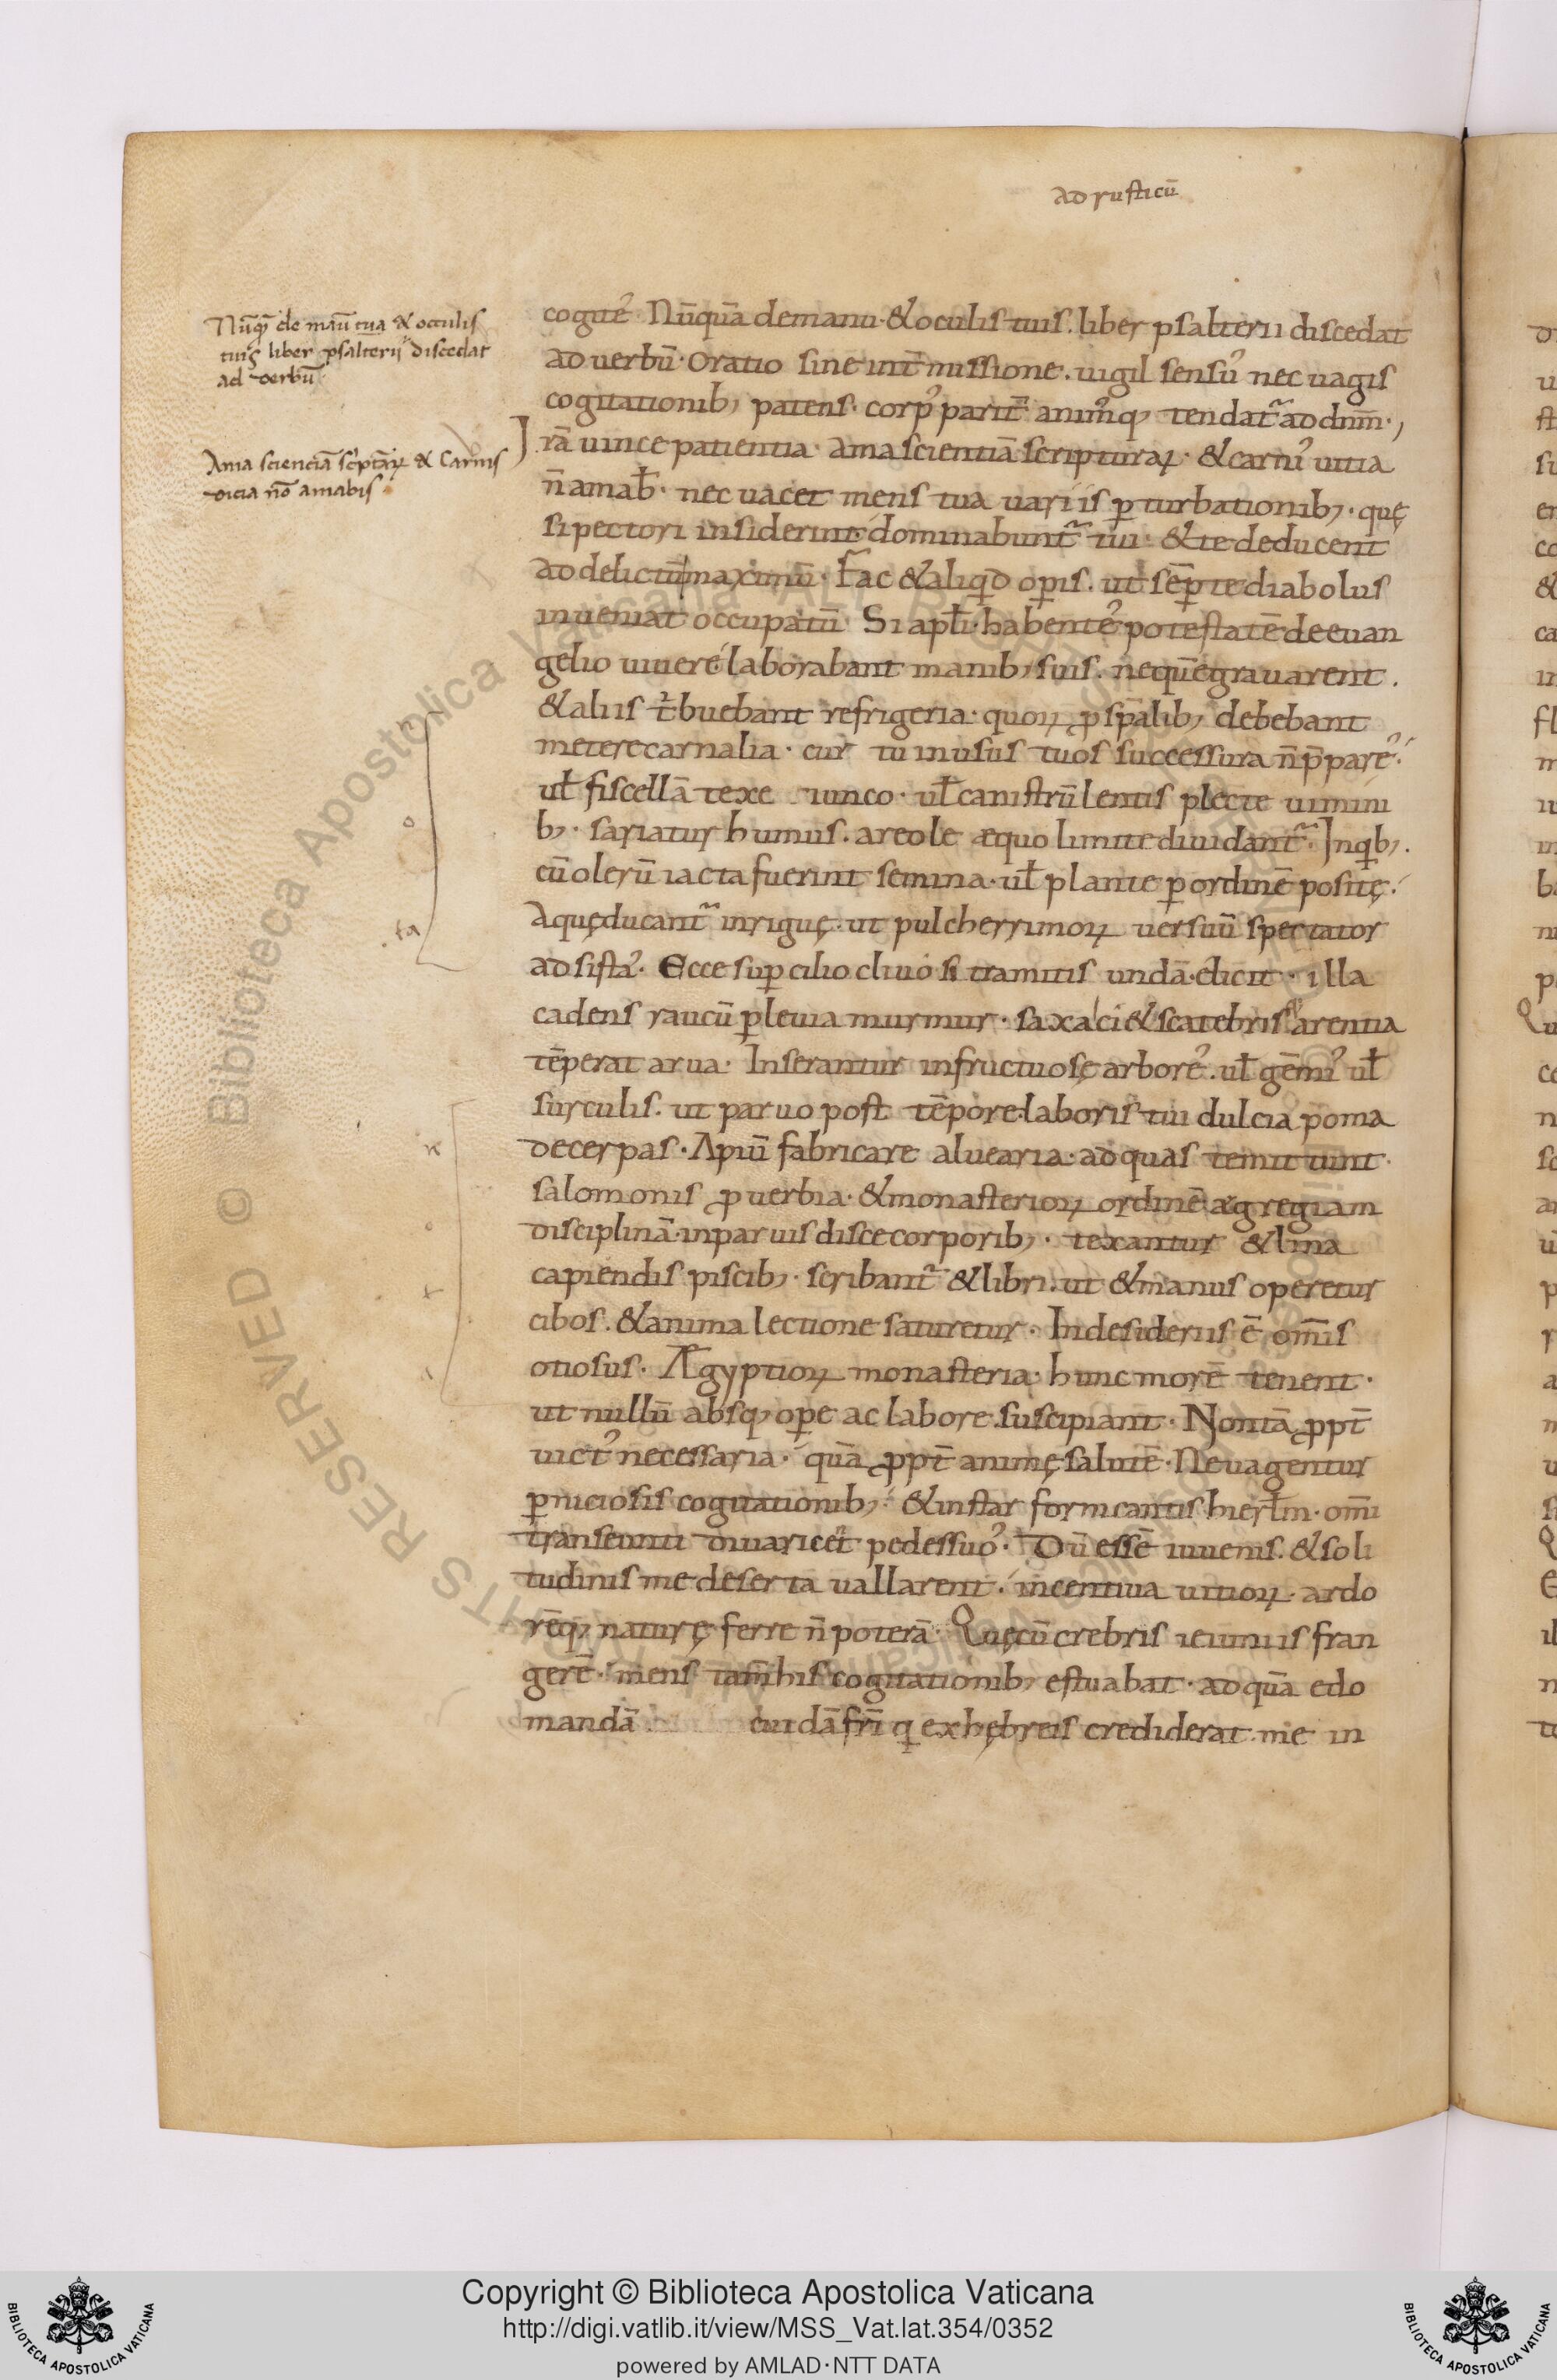 ad rusticū
Nūq̄ de manū tua & occulis
tuis liber psalterij discedat
ad verbū
Ama scienciā scͥptaꝝ & Carnis
vicia nō amabis
cogité Nūquā demanu·&oculis tuis. liber psalterii discedat
ad uerbū· oratio sine int̄missione. uigil sensuˀ nec uagis
cogitationib; patens· corpˀ parit̄ animˀq; tendat᷑ ad dnm̄·,
Irā uince patientia· ama scientiā scripturaꝝ· &carniˀ uitia
n̄ amab̄· nec uacet mens tua uariis ꝑturbationib;· quę
si pectori insiderint dominabunt᷑ tui· &te deducent
ad delictū maximū· Fac &aliqd opis. ut sēꝑ te diabolus
inueniat occupatū· Si apl̄i·habenteˀ potestatē deeuan
gelio uiuere laborabant manib; suis. nequē grauarent.
&aliis tͥbuebant refrigeria· quoꝝ ꝓ sp̄alib; debebant
metere carnalia· cur tu inusus tuos successura n̄ p̄pareˀ·
ul̄ fiscellā texe iunco· ul̄ canistrū lentis plecte uimini
b;· sariatur humus. areole aequo limite diuidant᷑· Inqib;.
cū olerū iacta fuerint semina· ul̄ plante ꝑ ordinē positę·
Aquę ducant᷑ inriguę· ut pulcherrimoꝝ uersuū spectator
adsistaˀ· Ecce suꝑcilio cliuosi tramitis undā·elicit· illa
cadens raucū ꝑ leuia murmur· saxa ci&scatebris arentia
tēperat arua· Inserantur infructuosę arboreˀ. ul̄ gēmiˀ ul̄
surculis. ut paruo post tēpore·laboris tui dulcia poma
decerpas· Apiū fabricare aluearia· ad quas temittunt·
salomonis ꝓuerbia· &monasterioꝝ ordinē ac regiam
disciplinā·inparuis disce corporib;· texantur &lina
capiendis piscib;· scribant᷑ &libri. ut &manus operetur
cibos. &anima lectione saturetur· Indesideriis ē om̄is
otiosus· Ægyptioꝝ monasteria· hunc morē tenent·
ut nullū absq; oꝑe ac labore suscipiant· Nontā ꝓpt̄
uictˀ necessaria· quā ꝓpt̄ animę salutē· Neuagentur
ꝑniciosis cogitationib;· &instar fornicantis hierl̄m· om̄i
transeunti diuaricet pedes suoˀ· Dū essē iuuenis. &soli
tudinis me deserta uallarent· incentiua uitioꝝ· ardo
rēq; naturę ferre n̄ poterā· Quęcū crebris ieiuniis fran
gerē· mens tam̄his cogitationib; estuabat· ad quā edo
mandā cuidā fr̄i q̇ exhębreis crediderat. me in
Copyright © Biblioteca Apostolica Vaticana
http://digi.vatlib.it/view/MSS_Vat.lat.354/0352
powered by AMLAD·NTT DATA